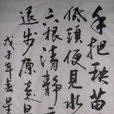 手把秧苗
低頭便見水
六根清靜
退步原來
戊子年春